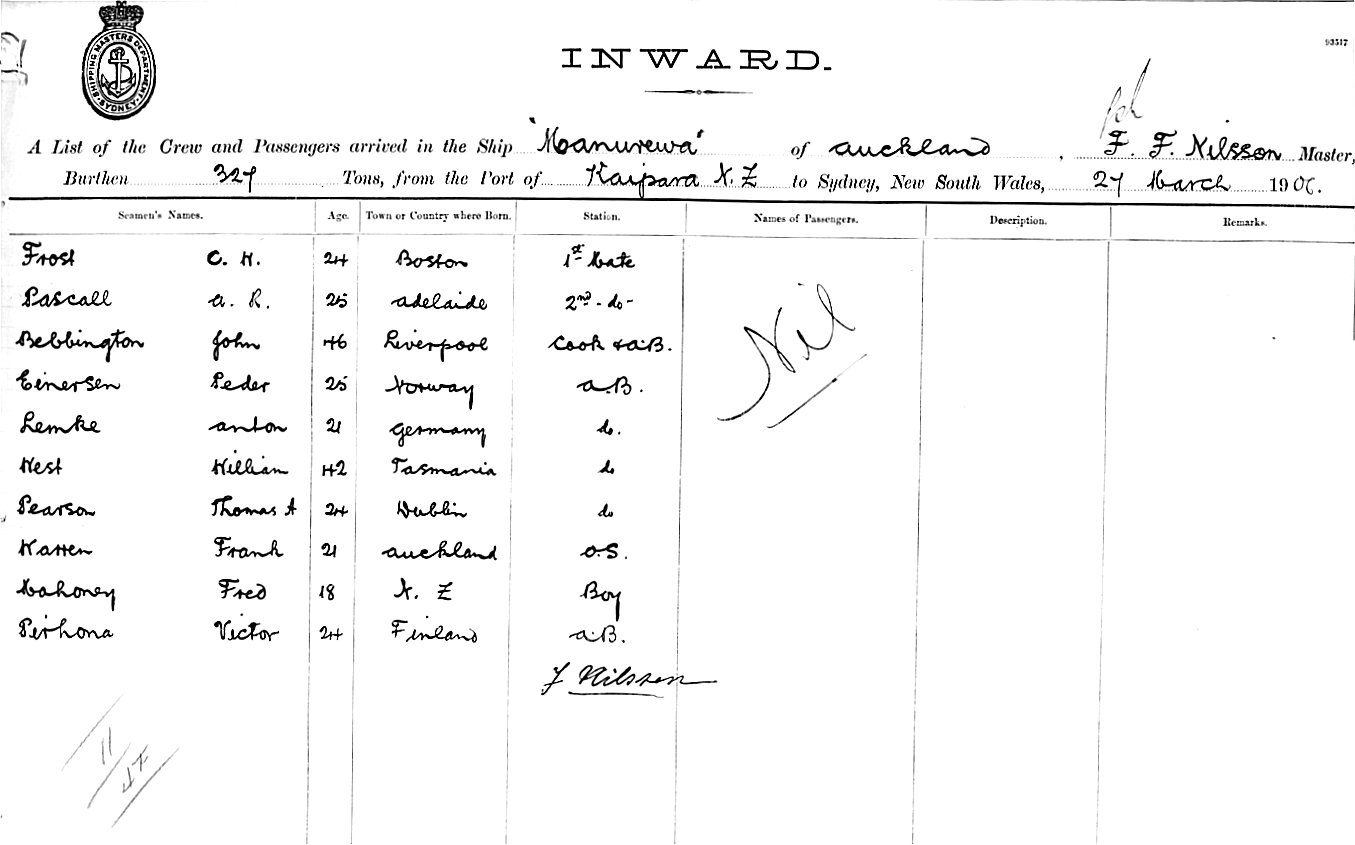 SHIPPING MASTERS DEPARTMENT. SYDNEY
INWARD.
93517
A List of the Crew and Passengers arrived in the Ship "Manurewa" of Auckland, F. F. Nilsson Master,
Burthen 327 Tons, from the Port of Kaipara N. Z to Sydney, New South Wales, 27 March 1906.
Seamen's Names. Age. Town or Country where Born. Station. Names of Passengers. Description. Remarks.
Frost C. H. 24 Boston 1st Mate
Pascall A. R. 25 Adelaide 2nd - do -
Bebbington John 46 Liverpool Cook & A.B.
Nil
Einersen Peder 25 Norway A.B.
Lemke Anton 21 Germany do.
West William 42 Tasmania do
Pearson Thomas A 24 Dublin do
Warren Frank 21 Auckland O.S.
Mahoney Fred 18 N. Z Boy
Perhona Victor 24 Finland A.B.
F Nilsson
11